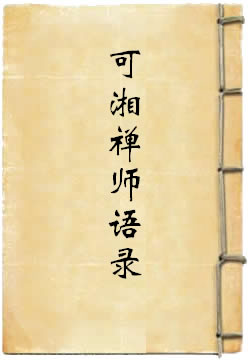 可湘禅师语录